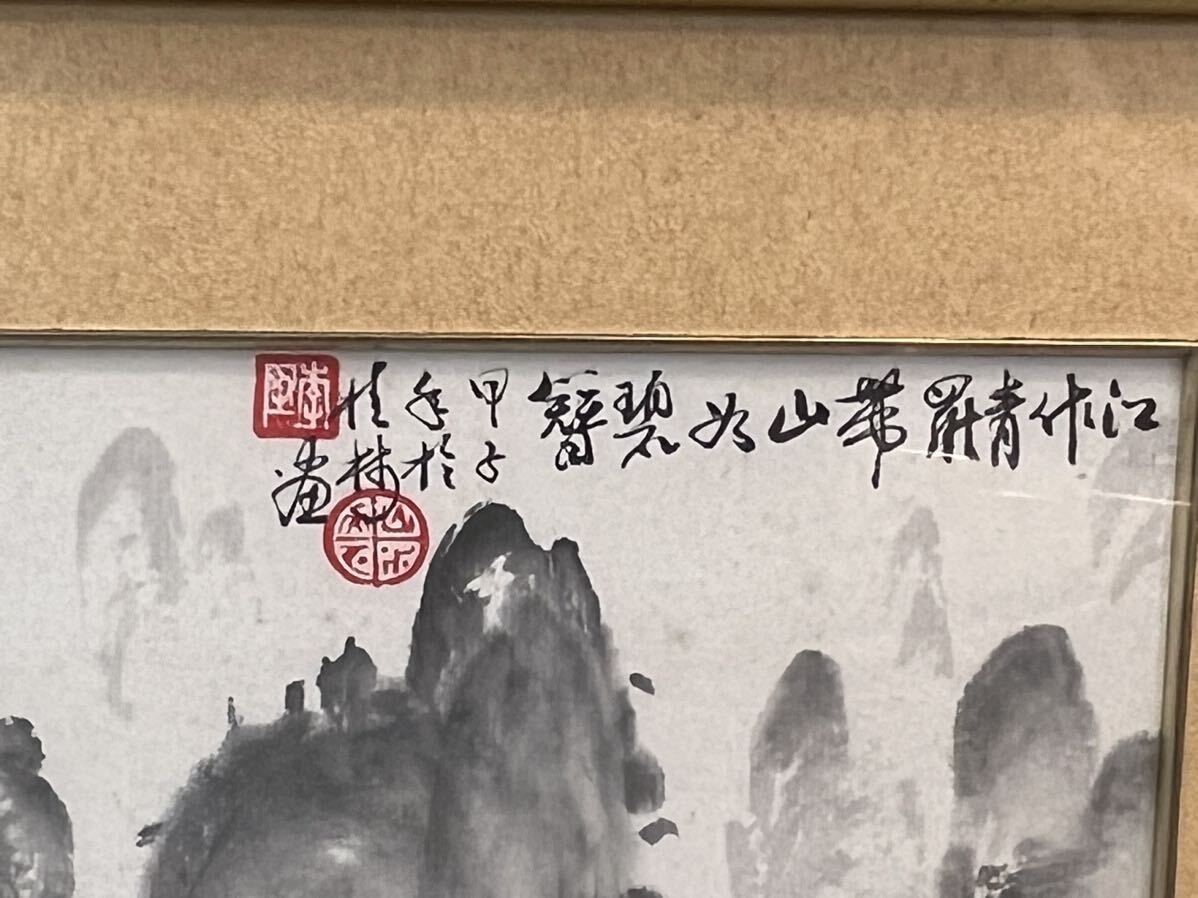 江作青羅带山如碧簪
甲子
年於
桂林
畫